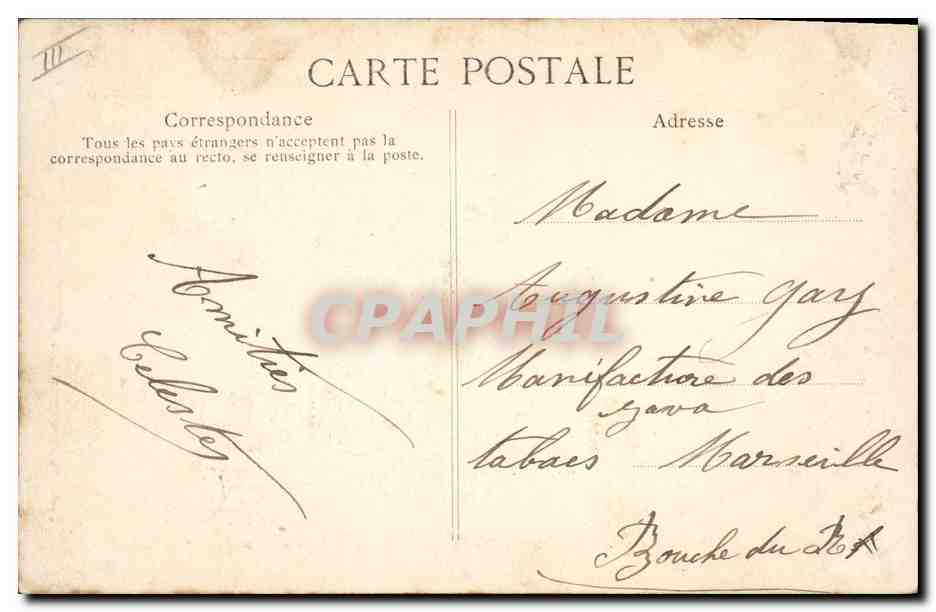 III
CARTE POSTALE
Correspondance
Tous les pays étrangers n'acceptent pas la
correspondance au recto, se renseigner à la poste.
Amitiés
Celeste
Adresse
Madame
Augustine Gary
Manifacture des
tabacs Marseille
Bouche du
CPAPHIL